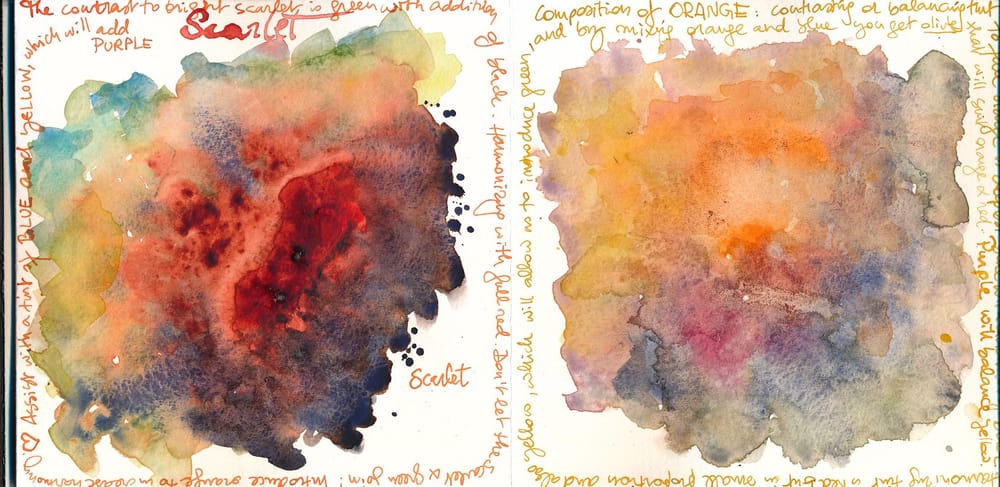 The contrast to bright scarlet is green with addition
of black. Harmonizing with full red. Don't let the
scarlet & green join: Introduce orange to increase harmony. ♡
Assist with a tint of BLUE and yellow, which will add
PURPLE
Scarlet
Scarlet
Composition of ORANGE: contrasting or balancing tint
Purple will balance yellow
Harmonizing tint is red but in small proportion and also
yellow, which will allow us to introduce green,
and by mixing orange and blue you get olive